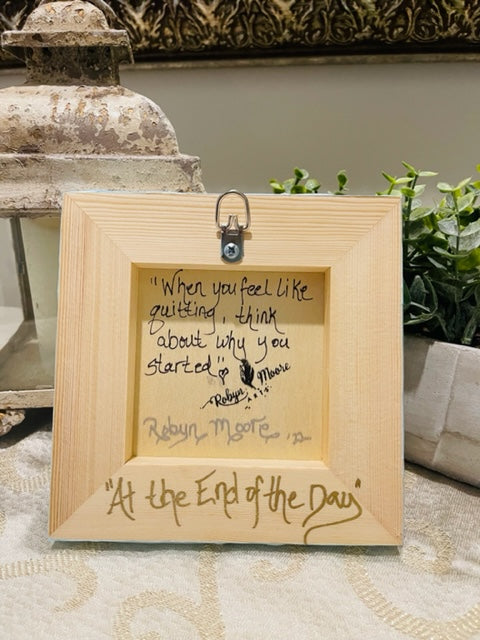 "When you feel like
quitting, think
about why you
started"
Robyn Moore
Artist
Robyn Moore '22
"At the End of the Day"